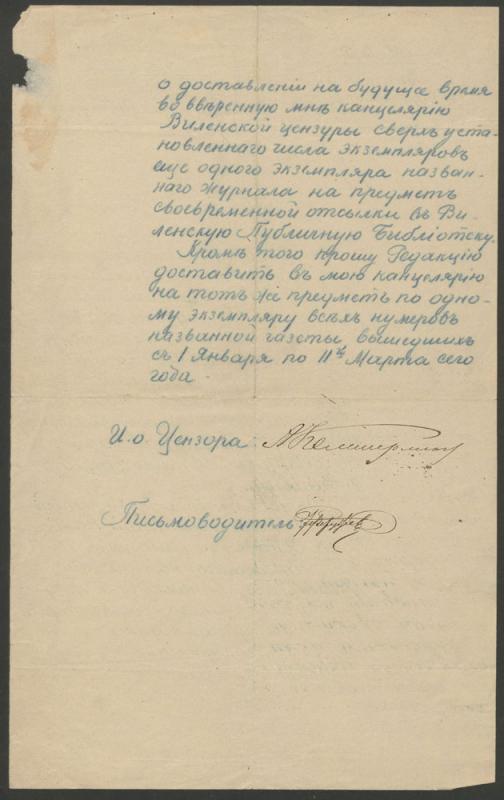 о доставленіи на будущее время
во ввѣренную мнѣ канцелярію
Виленской цензуры сверхъ уста-
новленнаго числа экземпляровъ
еще одного экземпляра назван-
наго журнала на предметъ
своевременной отсылки въ Ви-
ленскую Публичную Библіотеку.
Кромѣ того прошу Редакцію
доставить въ мою канцелярію
на тотъ же предметъ по одно-
му экземпляру всѣхъ нумеровъ
названной газеты вышедшихъ
съ 1 Января по 11ое Марта сего
года.
И. о. Цензора:
Письмоводитель